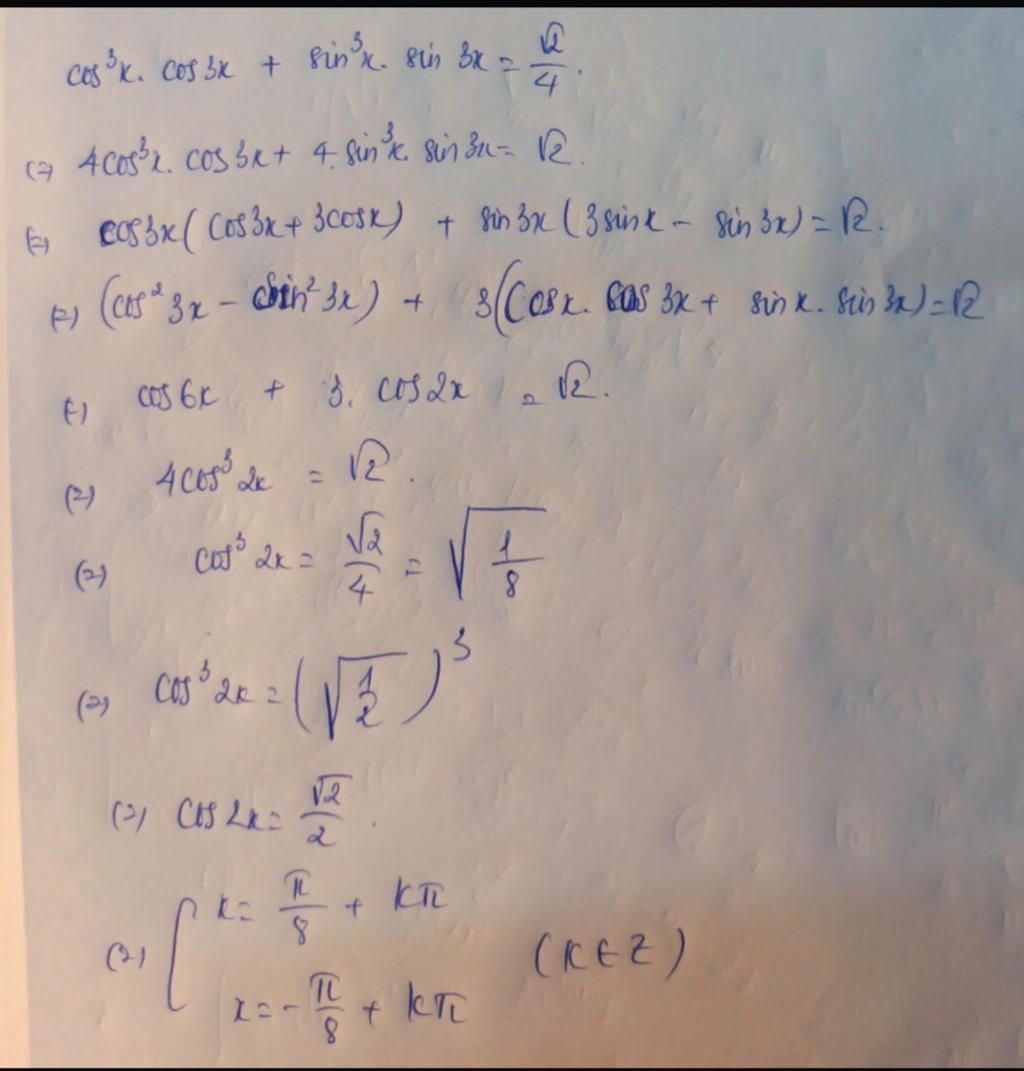 cos³x. cos3x + sin³x. sin 3x = √2/4.
(=) 4cos³x. cos3x + 4. sin³x. sin3x = √2.
(=) cos3x(cos3x + 3cosx) + sin3x(3sinx - sin3x) = √2.
(=) (cos²3x - sin²3x) + 3(cosx. cos3x + sinx. sin3x) = √2
(=) cos6x + 3. cos2x = √2.
(=) 4cos³2x = √2.
(=) cos³2x = √2/4 = √(1/8)
(=) cos³2x = (√(1/2))³
(=) cos2x = √2/2.
(=) [ x = π/8 + kπ
x = -π/8 + kπ (k∈Z)